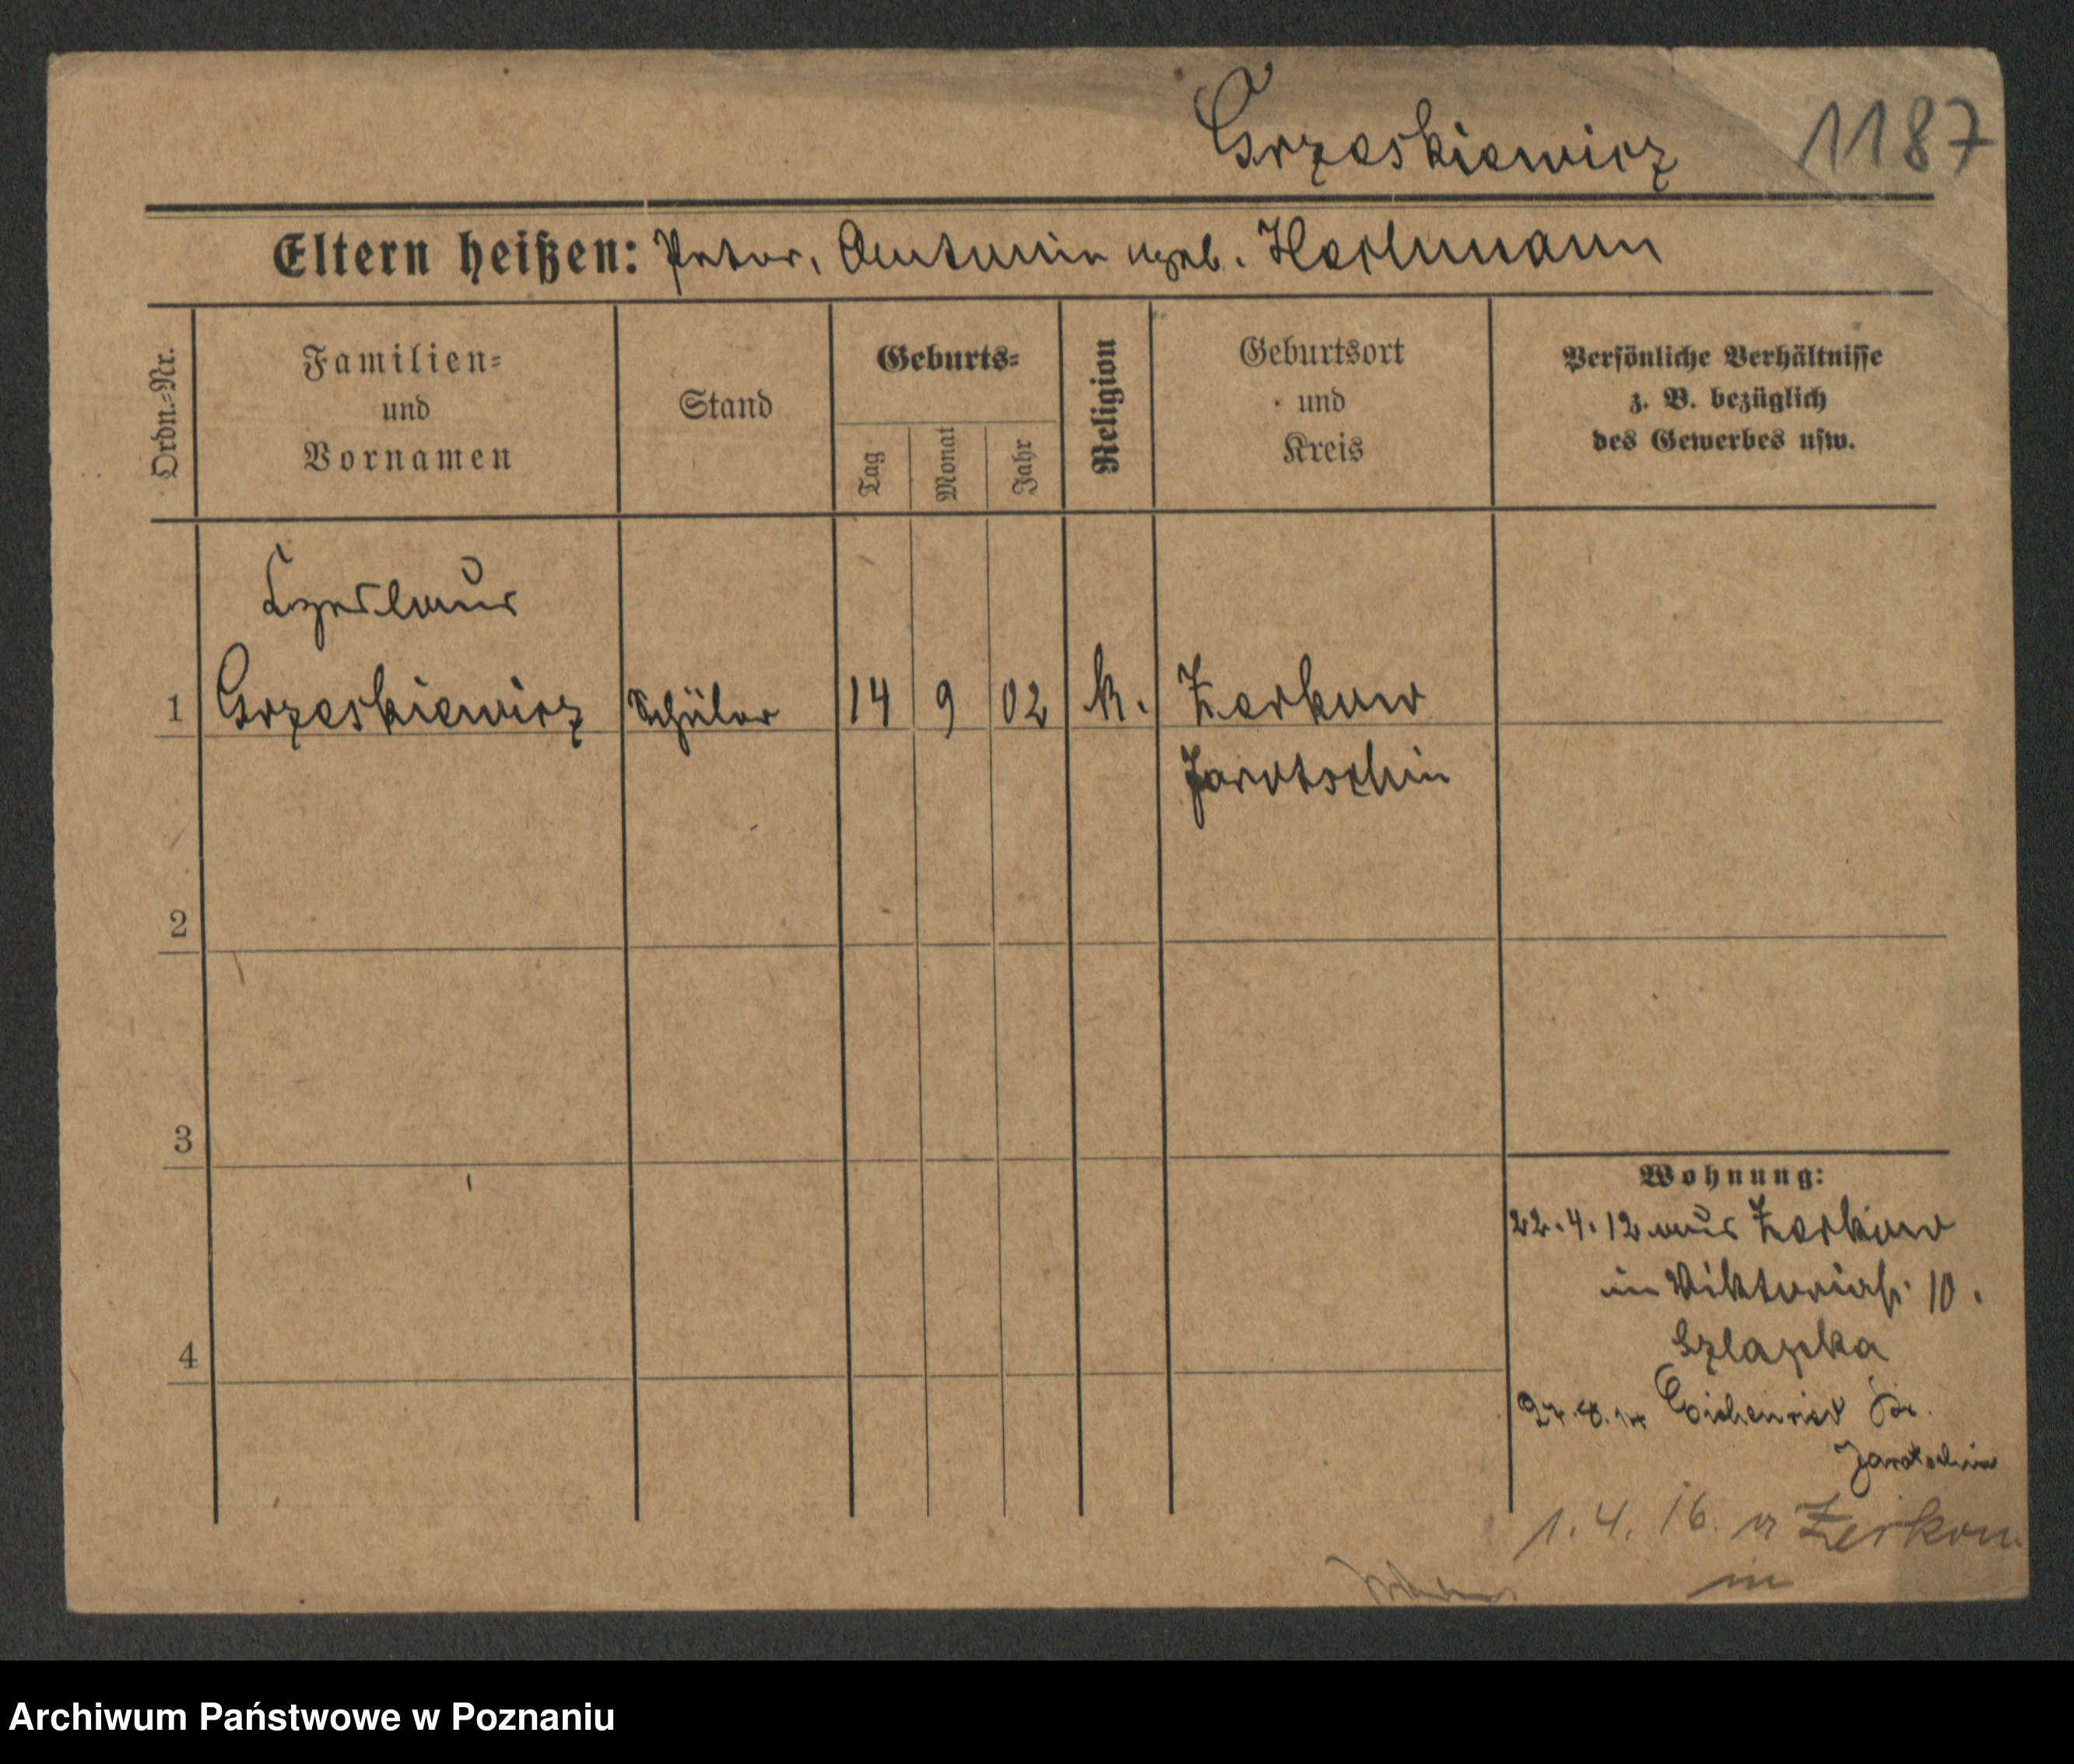 Grzeskiewicz 1187
Eltern heißen: Peter, Antonie geb. Hachmann
Ordn.-Nr.
Familien-
und
Vornamen
Stand
Geburts-
Tag
Monat
Jahr
Religion
Geburtsort
und
Kreis
Persönliche Verhältnisse
z. B. bezüglich
des Gewerbes usw.
1 Grzeskiewicz Schüler 14 9 02 k. Zerkow
Jarotschin
2
3
4
Wohnung:
22.4.12 aus Zerkow
in Viktoriastr. 10.
Szlapka
27.8.14 Eichenried Kr.
Jarotschin
1.4.16. a Zerkow
in
Archiwum Państwowe w Poznaniu